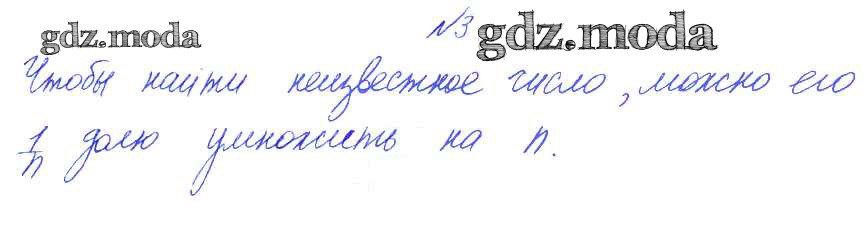 gdz.moda №3 gdz.moda
Чтобы найти неизвестное число, можно его
1/n долю умножить на n.